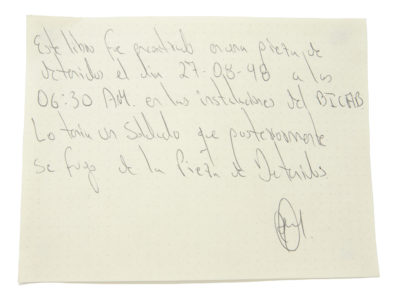 Este libro fue encontrado en una pieza de
detenidos el dia 27-08-98 a las
06:30 AM. en las instalaciones del BICAB
Lo tenia un Soldado que posteriormente
se fugo de la Pieza de Detenidos